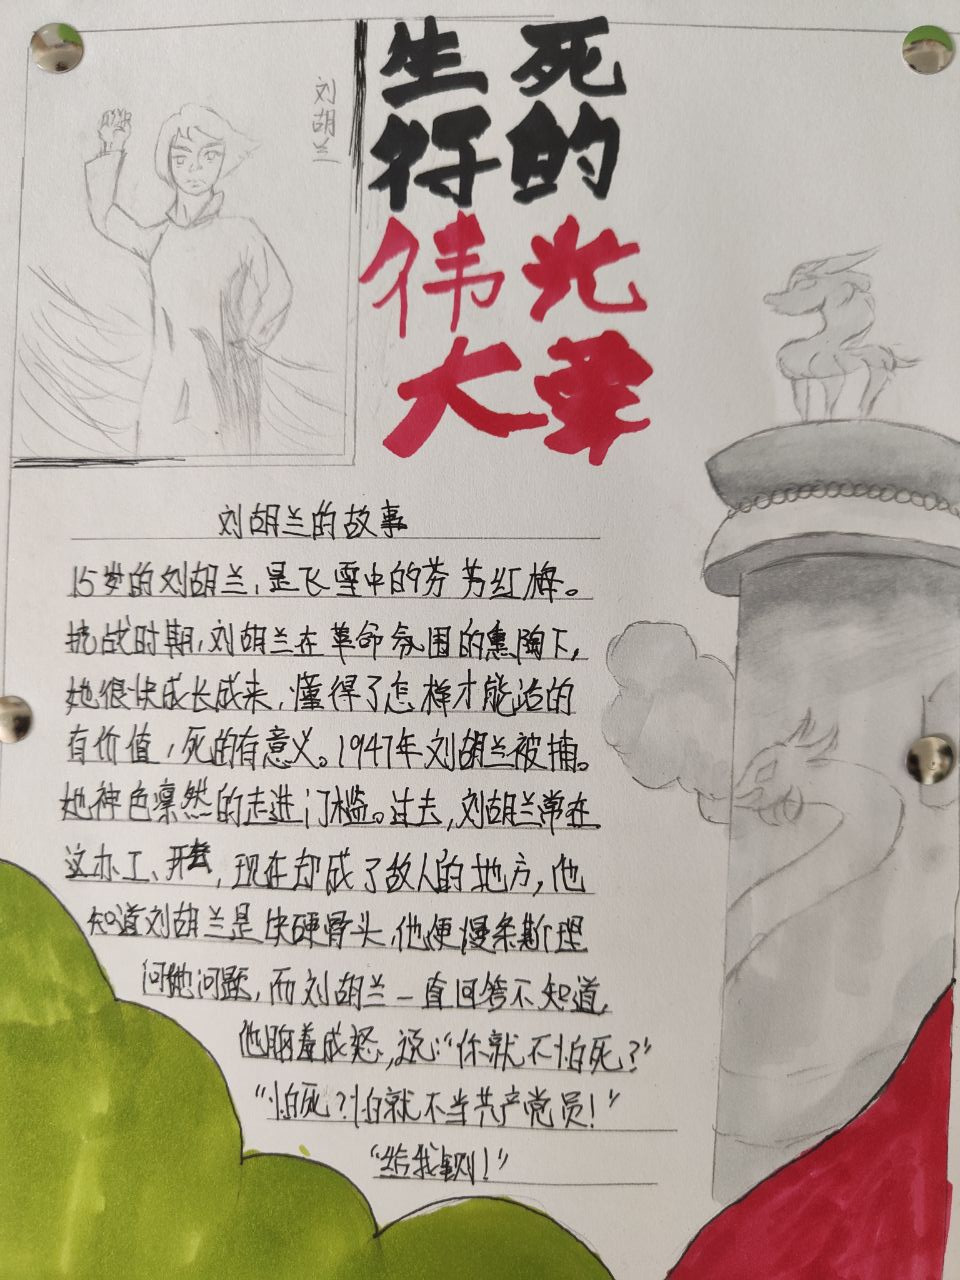 刘胡兰
生的伟大
死的光荣
刘胡兰的故事
15岁的刘胡兰,是飞雪中的芬芳红梅。
抗战时期,刘胡兰在革命氛围的熏陶下,
她很快成长成来,懂得了怎样才能活的
有价值,死的有意义。1947年刘胡兰被捕。
她神色凛然的走进门槛。过去,刘胡兰常在
这办工、开会,现在却成了敌人的地方,他
知道刘胡兰是块硬骨头,他便慢条斯理
问她问题,而刘胡兰一直回答不知道,
他恼羞成怒,说:“你就不怕死?”
“怕死?怕就不当共产党员!”
“给我铡!”